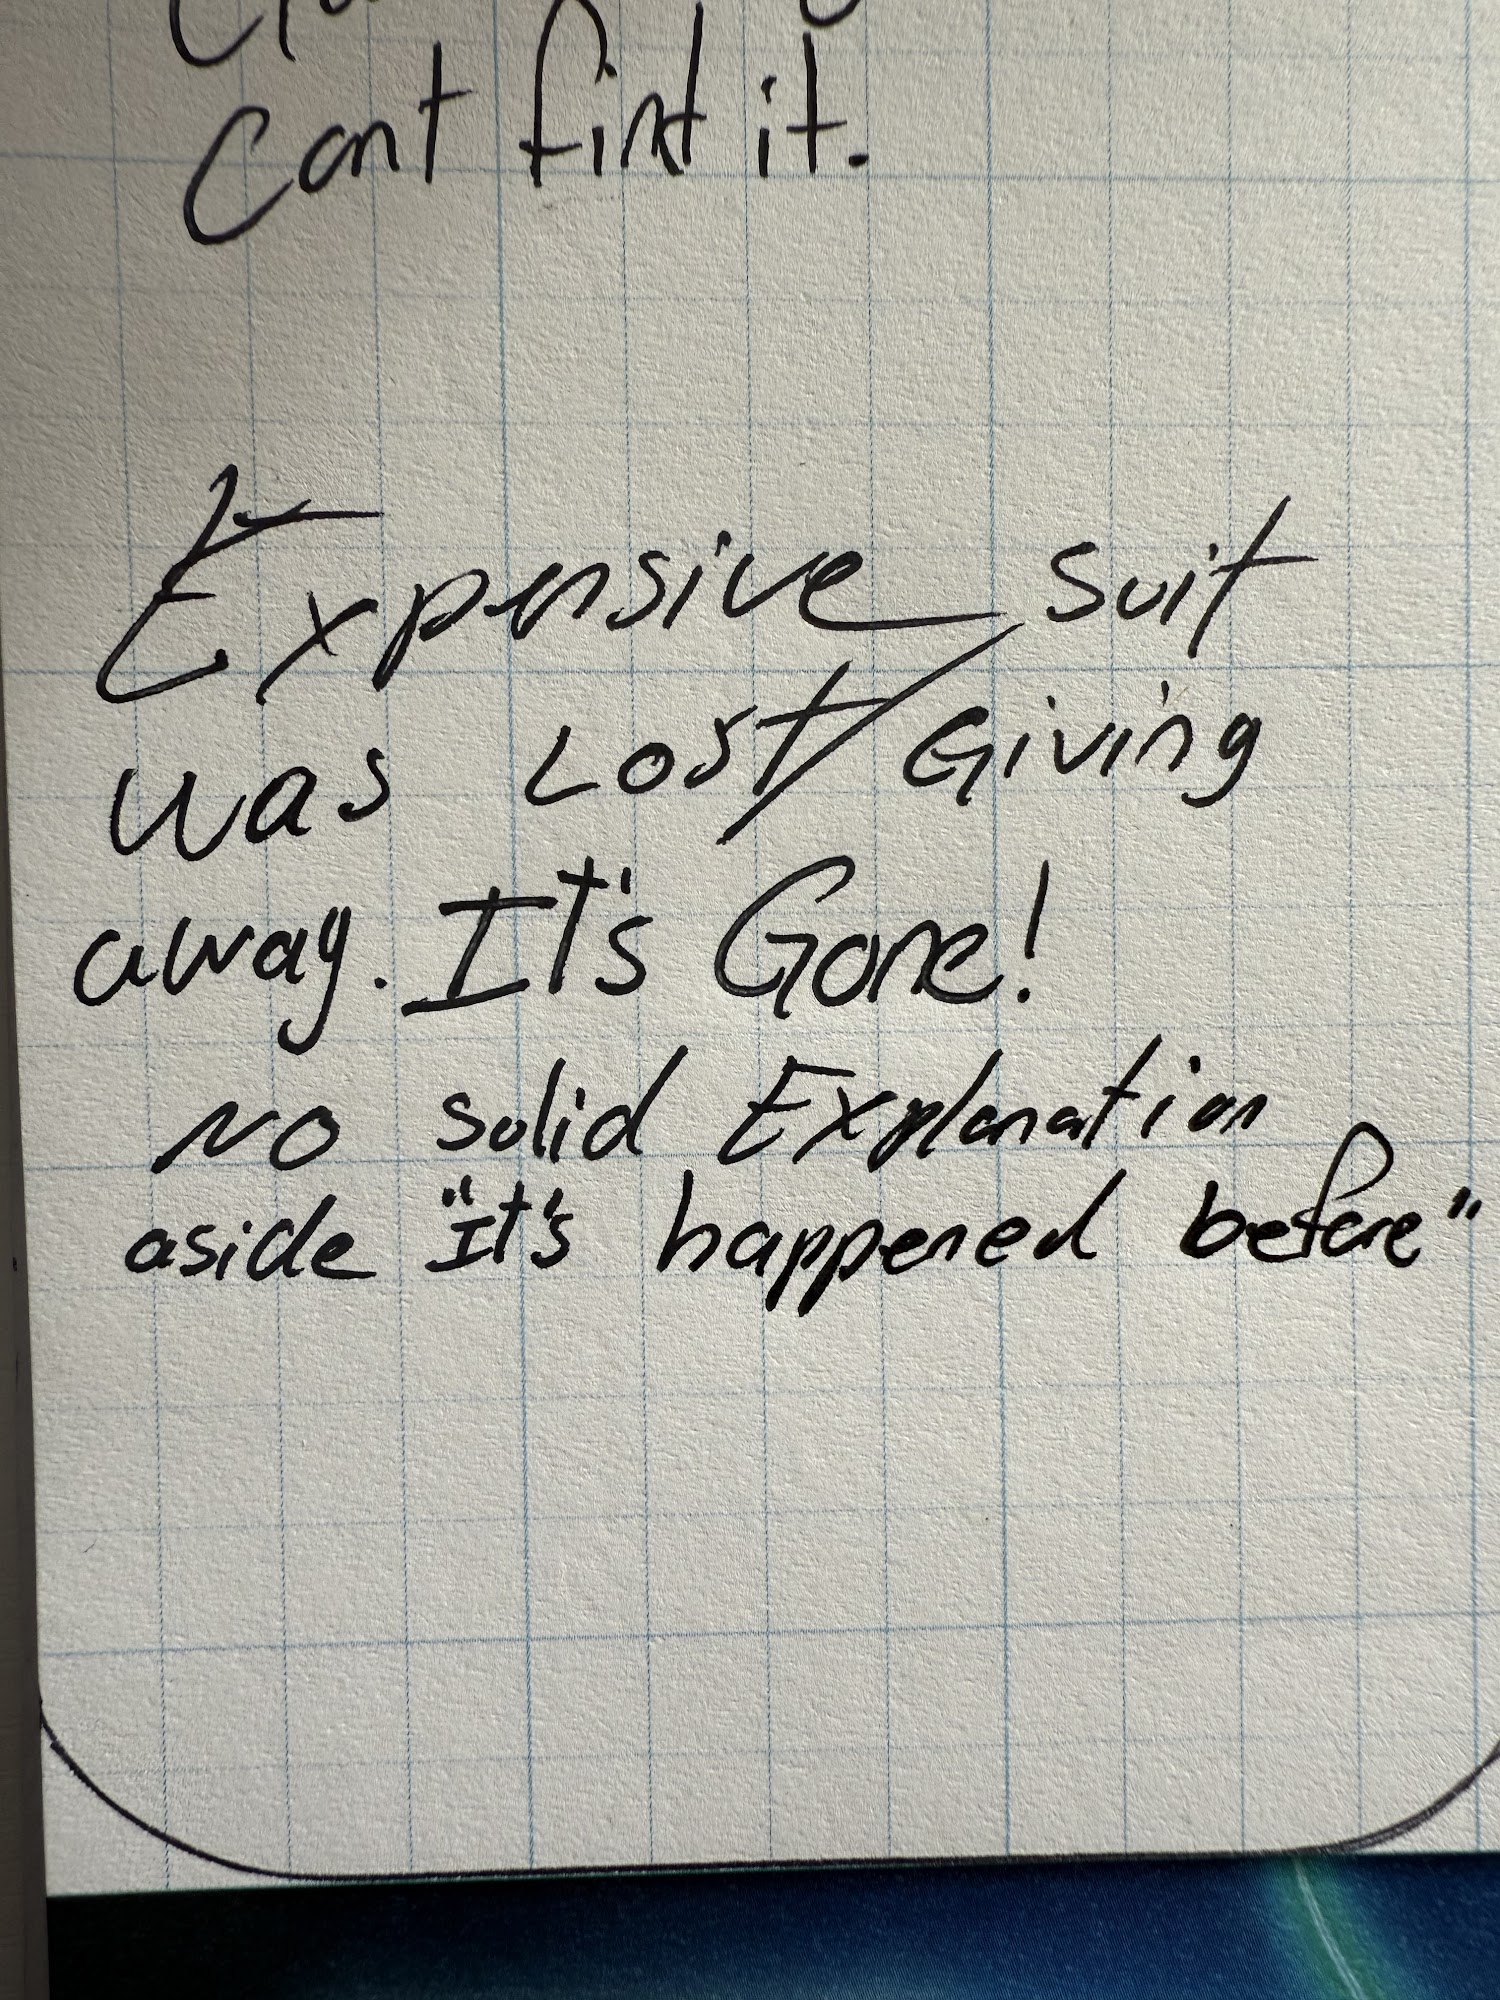 Cant find it.
Expensive suit
was Lost/Giving
away. It's Gone!
NO solid Explanation
aside "It's happened before"